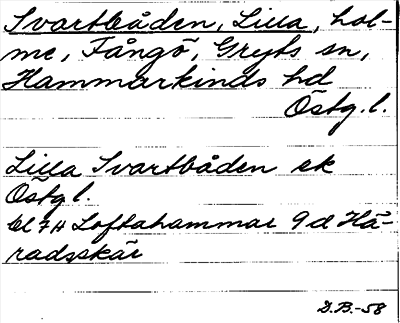 Svartbåden, Lilla, hol-
me, Fångö, Gryts sn,
Hammarkinds hd
Östg.l.
Lilla Svartbåden ek
Östg l.
bl 7H Loftahammar 9d Hä-
radsskär
D.B.-58